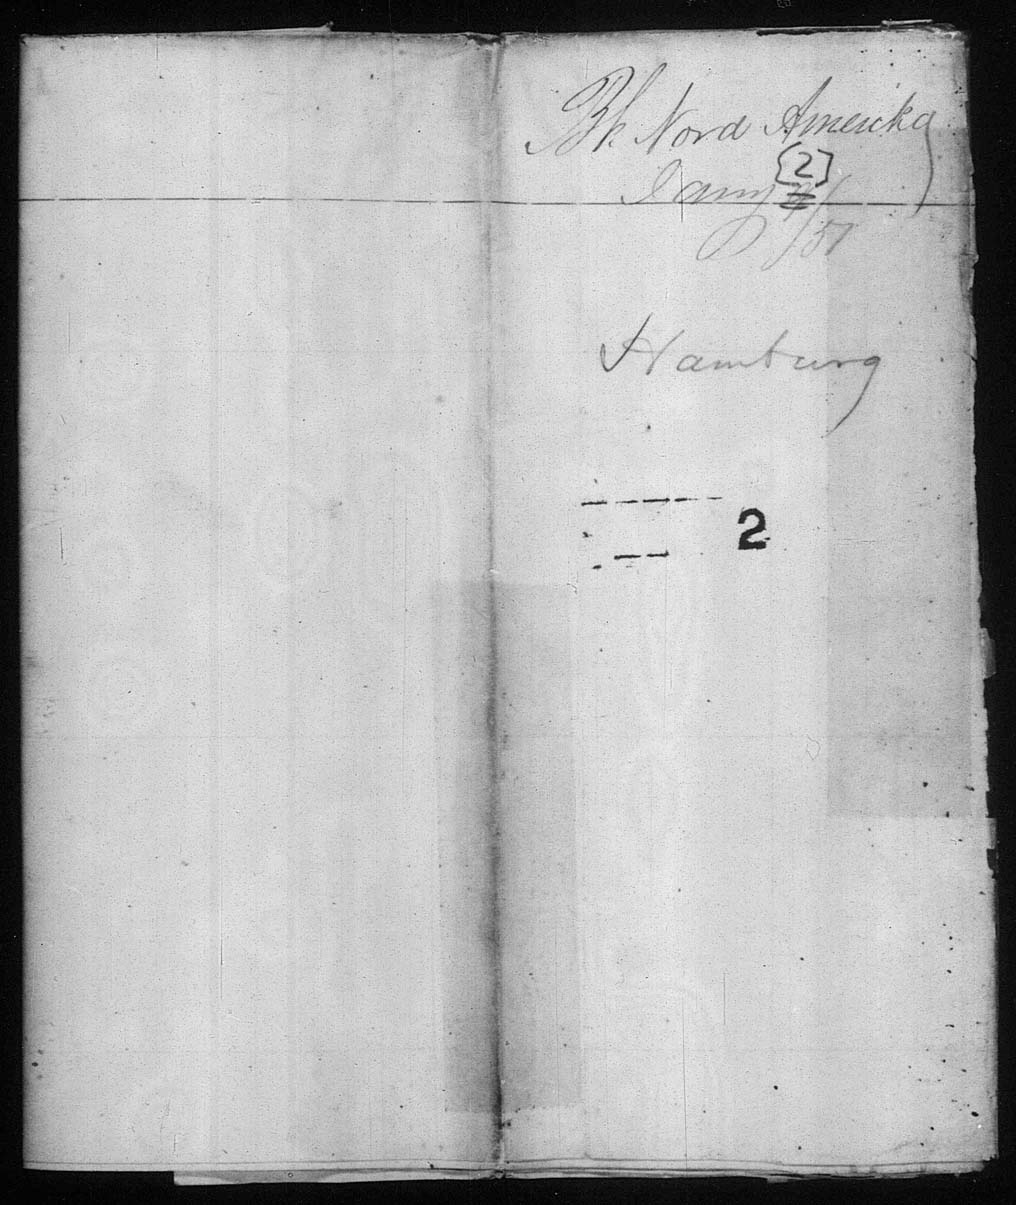 Bk. Nord Amerika
[2]
Jany 2/
/51
Hamburg
2